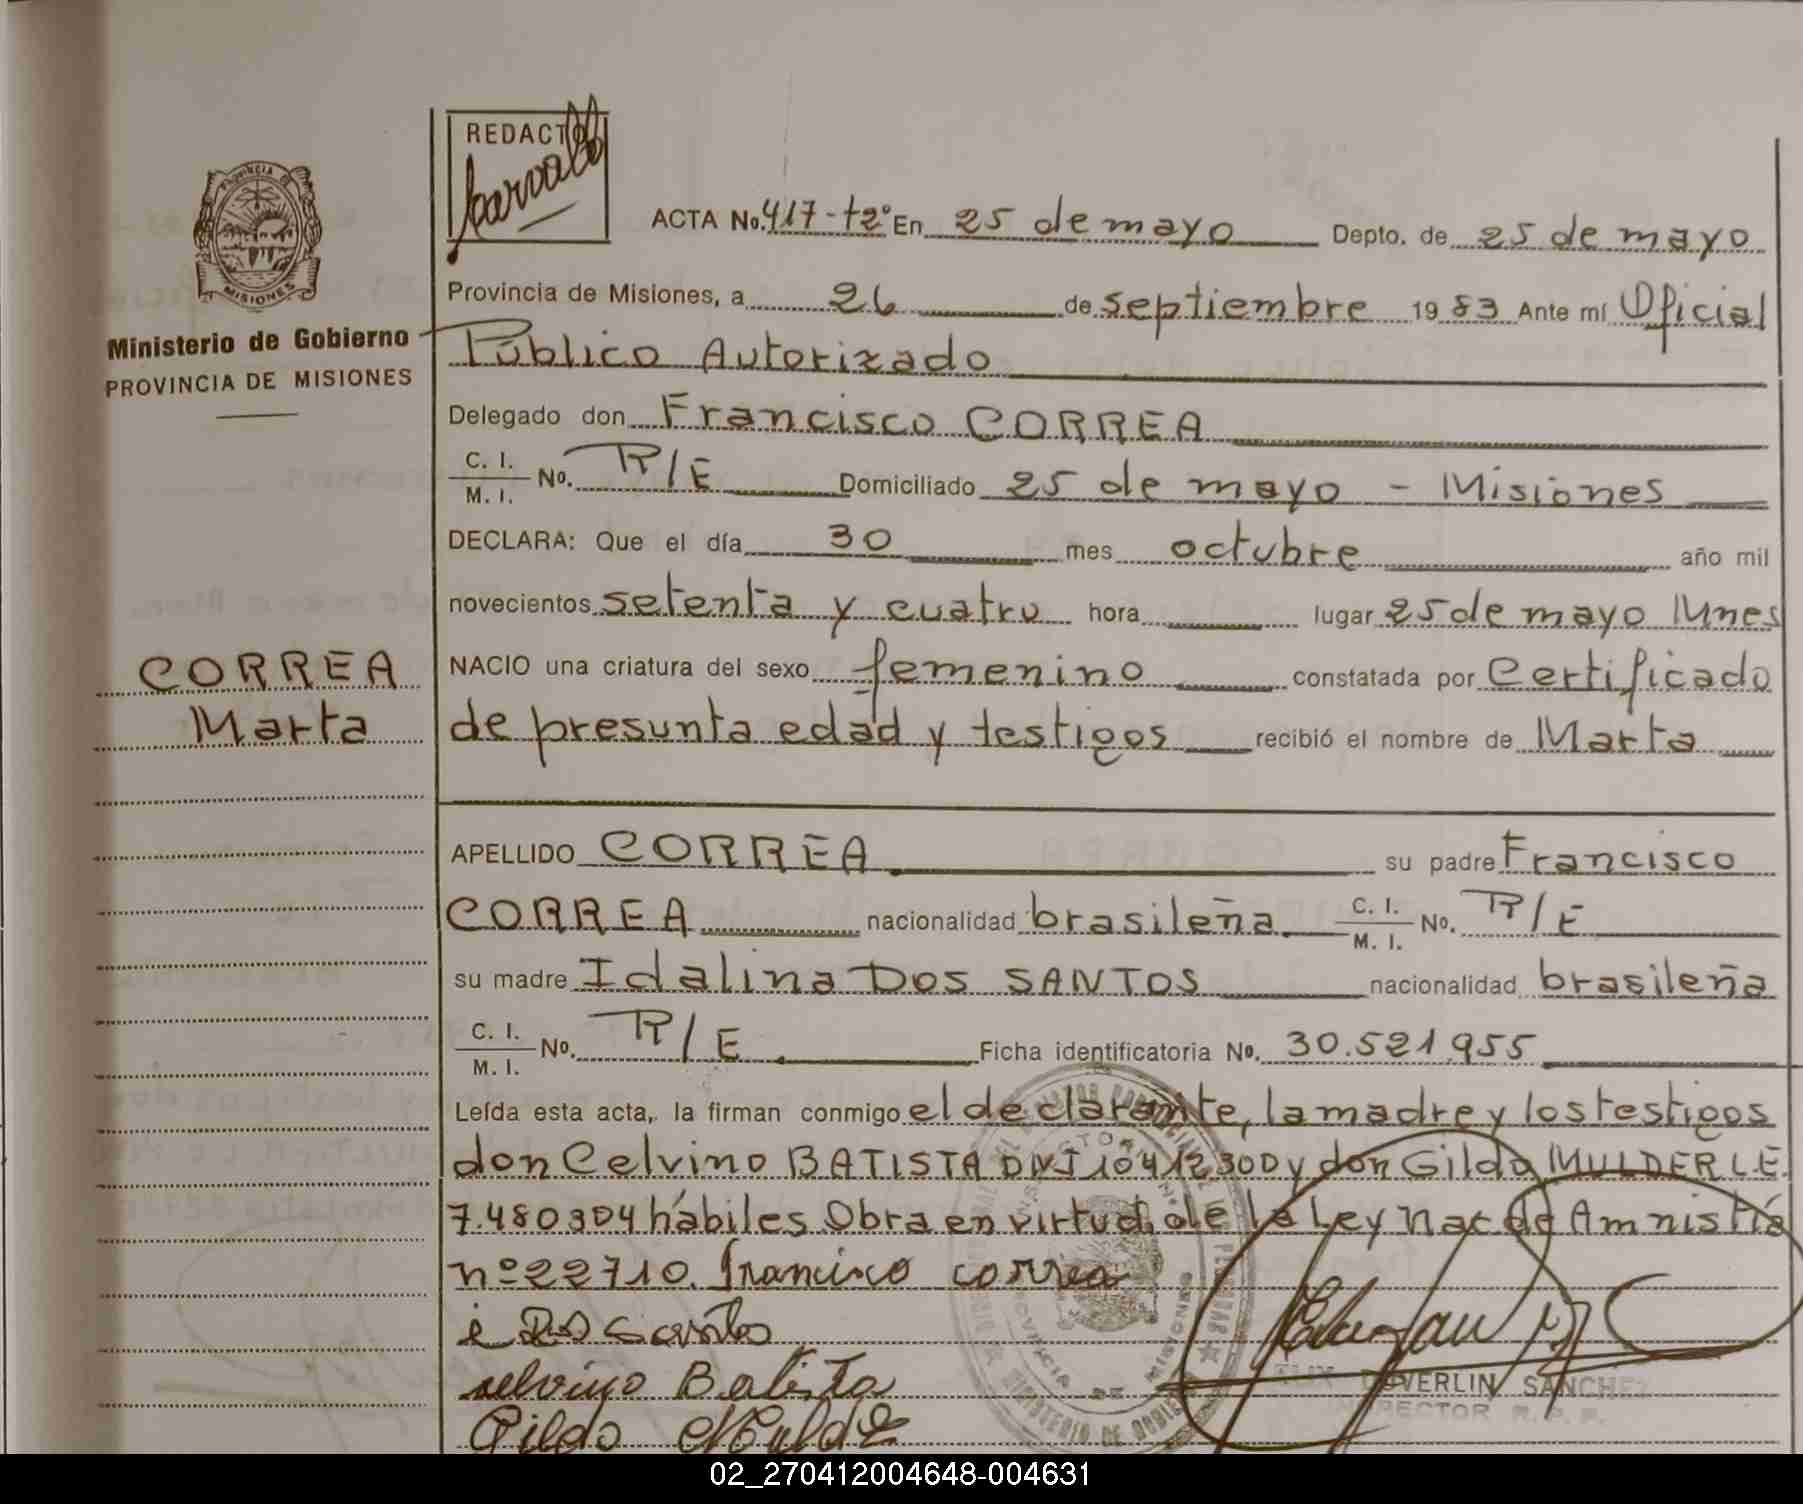 REDACTO
ACTA No. 417-t2° En 25 de mayo Depto. de 25 de mayo
PROVINCIA DE
MISIONES
Provincia de Misiones, a 26 de septiembre 1983 Ante mí Oficial
Ministerio de Gobierno
PROVINCIA DE MISIONES
Público Autorizado
Delegado don Francisco CORREA
C. I. / M. I. No. R/E Domiciliado 25 de mayo - Misiones
DECLARA: Que el día 30 mes octubre año mil
novecientos setenta y cuatro hora lugar 25 de mayo Mnes
CORREA
Marta
NACIO una criatura del sexo femenino constatada por Certificado
de presunta edad y testigos recibió el nombre de Marta
APELLIDO CORREA su padre Francisco
CORREA nacionalidad brasileña C. I. / M. I. No. R/E
su madre Idalina DOS SANTOS nacionalidad brasileña
C. I. / M. I. No. R/E Ficha identificatoria No. 30.521.955
Leída esta acta, la firman conmigo el declarante, la madre y los testigos
don Celvino BATISTA DNI 10412300 y don Gildo MULDER L.E.
7.480.304 hábiles. Obra en virtud de la Ley Nac de Amnistía
nº 22710. Francisco correa
i Dos Santos
selvino Batista
Gildo Mulder
DUVERLIN SANCHEZ
INSPECTOR R. P. P.
PROVINCIA DE MISIONES
02_270412004648-004631